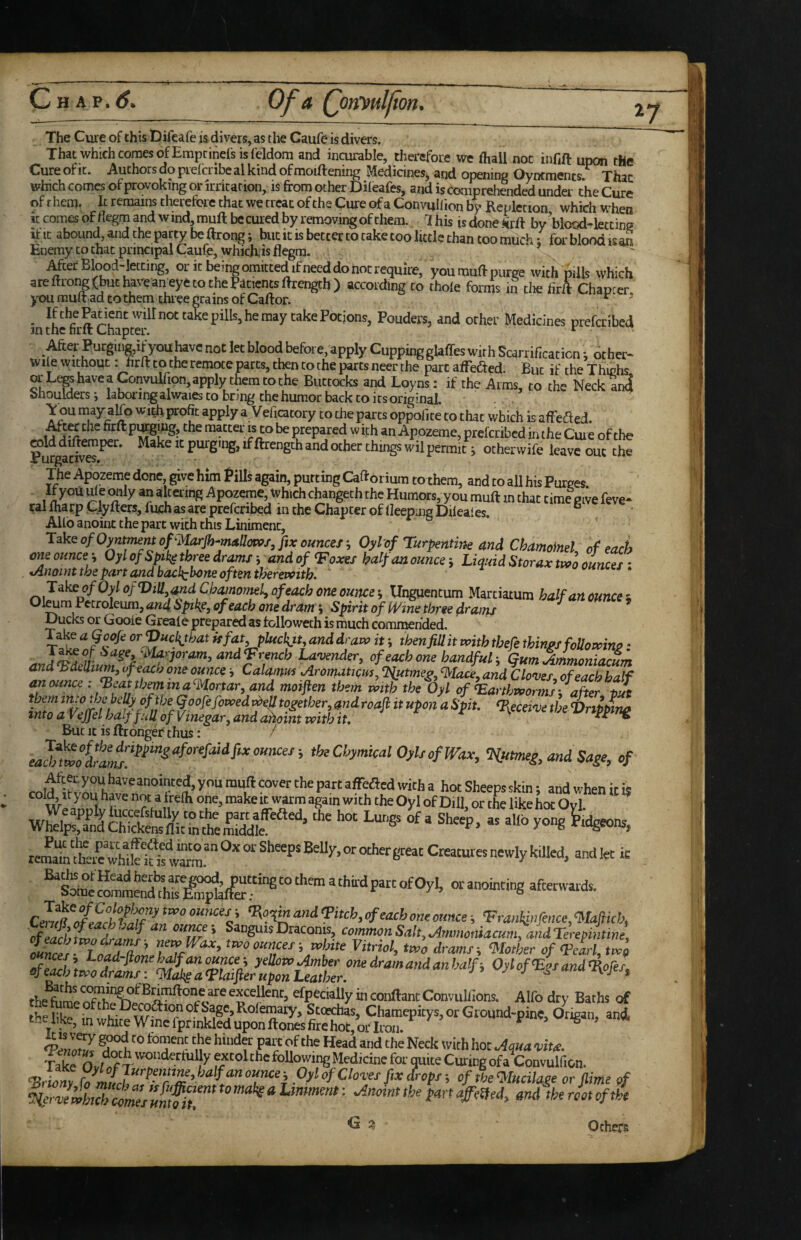 CHAP. 6. Of a Convulsion. 27
The Cure of this Diſeaſe is divers, as the Cauſe is divers.
That which comes of Emptineſs is ſeldom and incurable, therefore we ſhall not inſiſt upon the
Cure of it. Authors do preſcribe al kind of moiſtening Medicines, and opening Oyntments. That
which comes of provoking or irritation, is from other Diſeaſes, and is comprehended under the Cure
of them. It remains therefore that we treat of the Cure of a Convulſion by Repletion, which when
it comes of flegm and wind, muſt be cured by removing of them. This is done firſt by blood-letting
if it abound, and the party be ſtrong; but it is better to take too little than too much; for blood is an
Enemy to that principal Cauſe, which is flegm.
After Blood-letting, or it being omitted if need do not require, you muſt purge with pills which
are ſtrong (but have an eye to the Patients ſtrength) according to thoſe forms in the firſt Chapter,
you muſt ad to them three grains of Caſtor.
If the Patient will not take pills, he may take Potions, Pouders, and other Medicines preſcribed
in the firſt Chapter.
After Purging, if you have not let blood before, apply Cupping glaſſes with Scarrification; other-
wiſe without: firſt to the remote parts, then to the parts neer the part affected. But if the Thighs,
or Legs have a Convulſion, apply them to the Buttocks and Loyns: if the Arms, to the Neck and
Shoulders; laboring alwaies to bring the humor back to its original.
You may alſo with profit apply a Veſicatory to the parts oppoſite to that which is affected.
After the firſt purging, the matter is to be prepared with an Apozeme, preſcribed in the Cure of the
cold diſtemper. Make it purging, if ſtrength and other things wil permit; otherwiſe leave out the
Purgatives.
The Apozeme done, give him Pills again, putting Caſtorium to them, and to all his Purges.
If you uſe only an altering Apozeme, which changeth the Humors, you muſt in that time give ſeve-
ral ſharp Clyſters, ſuch as are preſcribed in the Chapter of ſleeping Diſeaſes.
Alſo anoint the part with this Liniment,
Take of Oyntment of Marſh-mallows, ſix ounces; Oyl of Turpentine and Chamomel, of each
one ounce; Oyl of Spike three drams; and of Foxes half an ounce; Liquid Storax two ounces:
Anoint the part and back-bone often therewith.
Take of Oyl of Dill, and Chamomel, of each one ounce; Unguentum Martiatum half an ounce;
Oleum Petroleum, and Spike, of each one dram; Spirit of Wine three drams
Ducks or Gooſe Greaſe prepared as followeth is much commended.
Take a Gooſe or Duck that is fat, pluck it, and draw it; then fill it with theſe things following:
Take of Sage, Marjoram, and French Lavender, of each one handful; Gum Ammoniacum
and Bdellium, of each one ounce; Calamus Aromaticus, Nutmeg, Mace, and Cloves, of each half
an ounce: Beat them in a Mortar, and moiſten them with the Oyl of Earthworms; after, put
them into the belly of the Gooſe ſowed well together, and roaſt it upon a Spit. Receive the Dripping
into a Veſſel half full of Vinegar, and anoint with it.
But it is ſtronger thus:
Take of the dripping aforeſaid ſix ounces; the Chymical Oyls of Wax, Nutmeg, and Sage, of
each two drams.
After you have anointed, you muſt cover the part affected with a hot Sheeps skin; and when it is
cold, if you have not a freſh one, make it warm again with the Oyl of Dill, or the like hot Oyl.
We apply ſucceſsfully to the part affected, the hot Lungs of a Sheep, as alſo yong Pidgeons,
Whelps, and Chickens ſlit in the middle.
Put the part affected into an Ox or Sheeps Belly, or other great Creatures newly killed, and let it
remain there while it is warm.
Baths of Head herbs are good, putting to them a third part of Oyl, or anointing afterwards.
Some commend this Emplaſter:
Take of Colophony two ounces; Rozin and Pitch, of each one ounce; Frankinſence, Maſtich,
Ceruſſ, of each half an ounce; Sanguis Draconis, common Salt, Ammoniacum, and Terepintine,
of each two drams; new Wax, two ounces; white Vitriol, two drams; Mother of Pearl, two
ounces; Load-ſtone half an ounce; yellow Amber one dram and an half; Oyl of Egs and Roſes,
of each two drams: Make a Plaiſter upon Leather.
Baths coming of Brimſtone are excellent, eſpecially in conſtant Convulſions. Alſo dry Baths of
the fume of the Decoction of Sage, Roſemary, Stœchas, Chamepitys, or Ground-pine, Origan, and
the like, in white Wine ſprinkled upon ſtones fire hot, or Iron.
It is very good to foment the hinder part of the Head and the Neck with hot Aqua vitæ.
Penotus doth wonderfully extol the following Medicine for quite Curing of a Convulſion.
Take Oyl of Turpentine, half an ounce; Oyl of Cloves ſix drops; of the Mucilage or ſlime of
Briony, ſo much as is ſufficient to make a Liniment: Anoint the part affected, and the root of the
Nerve which comes unto it.
G 2
Others